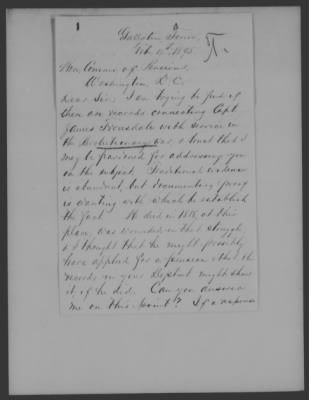 Gallatin Tenn.
Feb. 12th 1895
Hon. Comr. of Pensions,
Washington, D. C.
Dear Sir: I am trying to find if
there are records connecting Capt
James Trousdale with service in
the Revolutionary war, & trust that I
may be pardoned for addressing you
on the subject. Traditional evidence
is abundant, but documentary proof
is wanting with which to establish
the fact. He died in 1818, at this
place, was wounded in that struggle,
& I thought that he might possibly
have applied for a pension & that the
records in your Deptmt might show
it, if he did. Can you answer
me on this point? If a